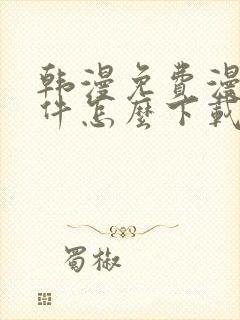 韩漫免费漫
件怎麼下載
蜀椒